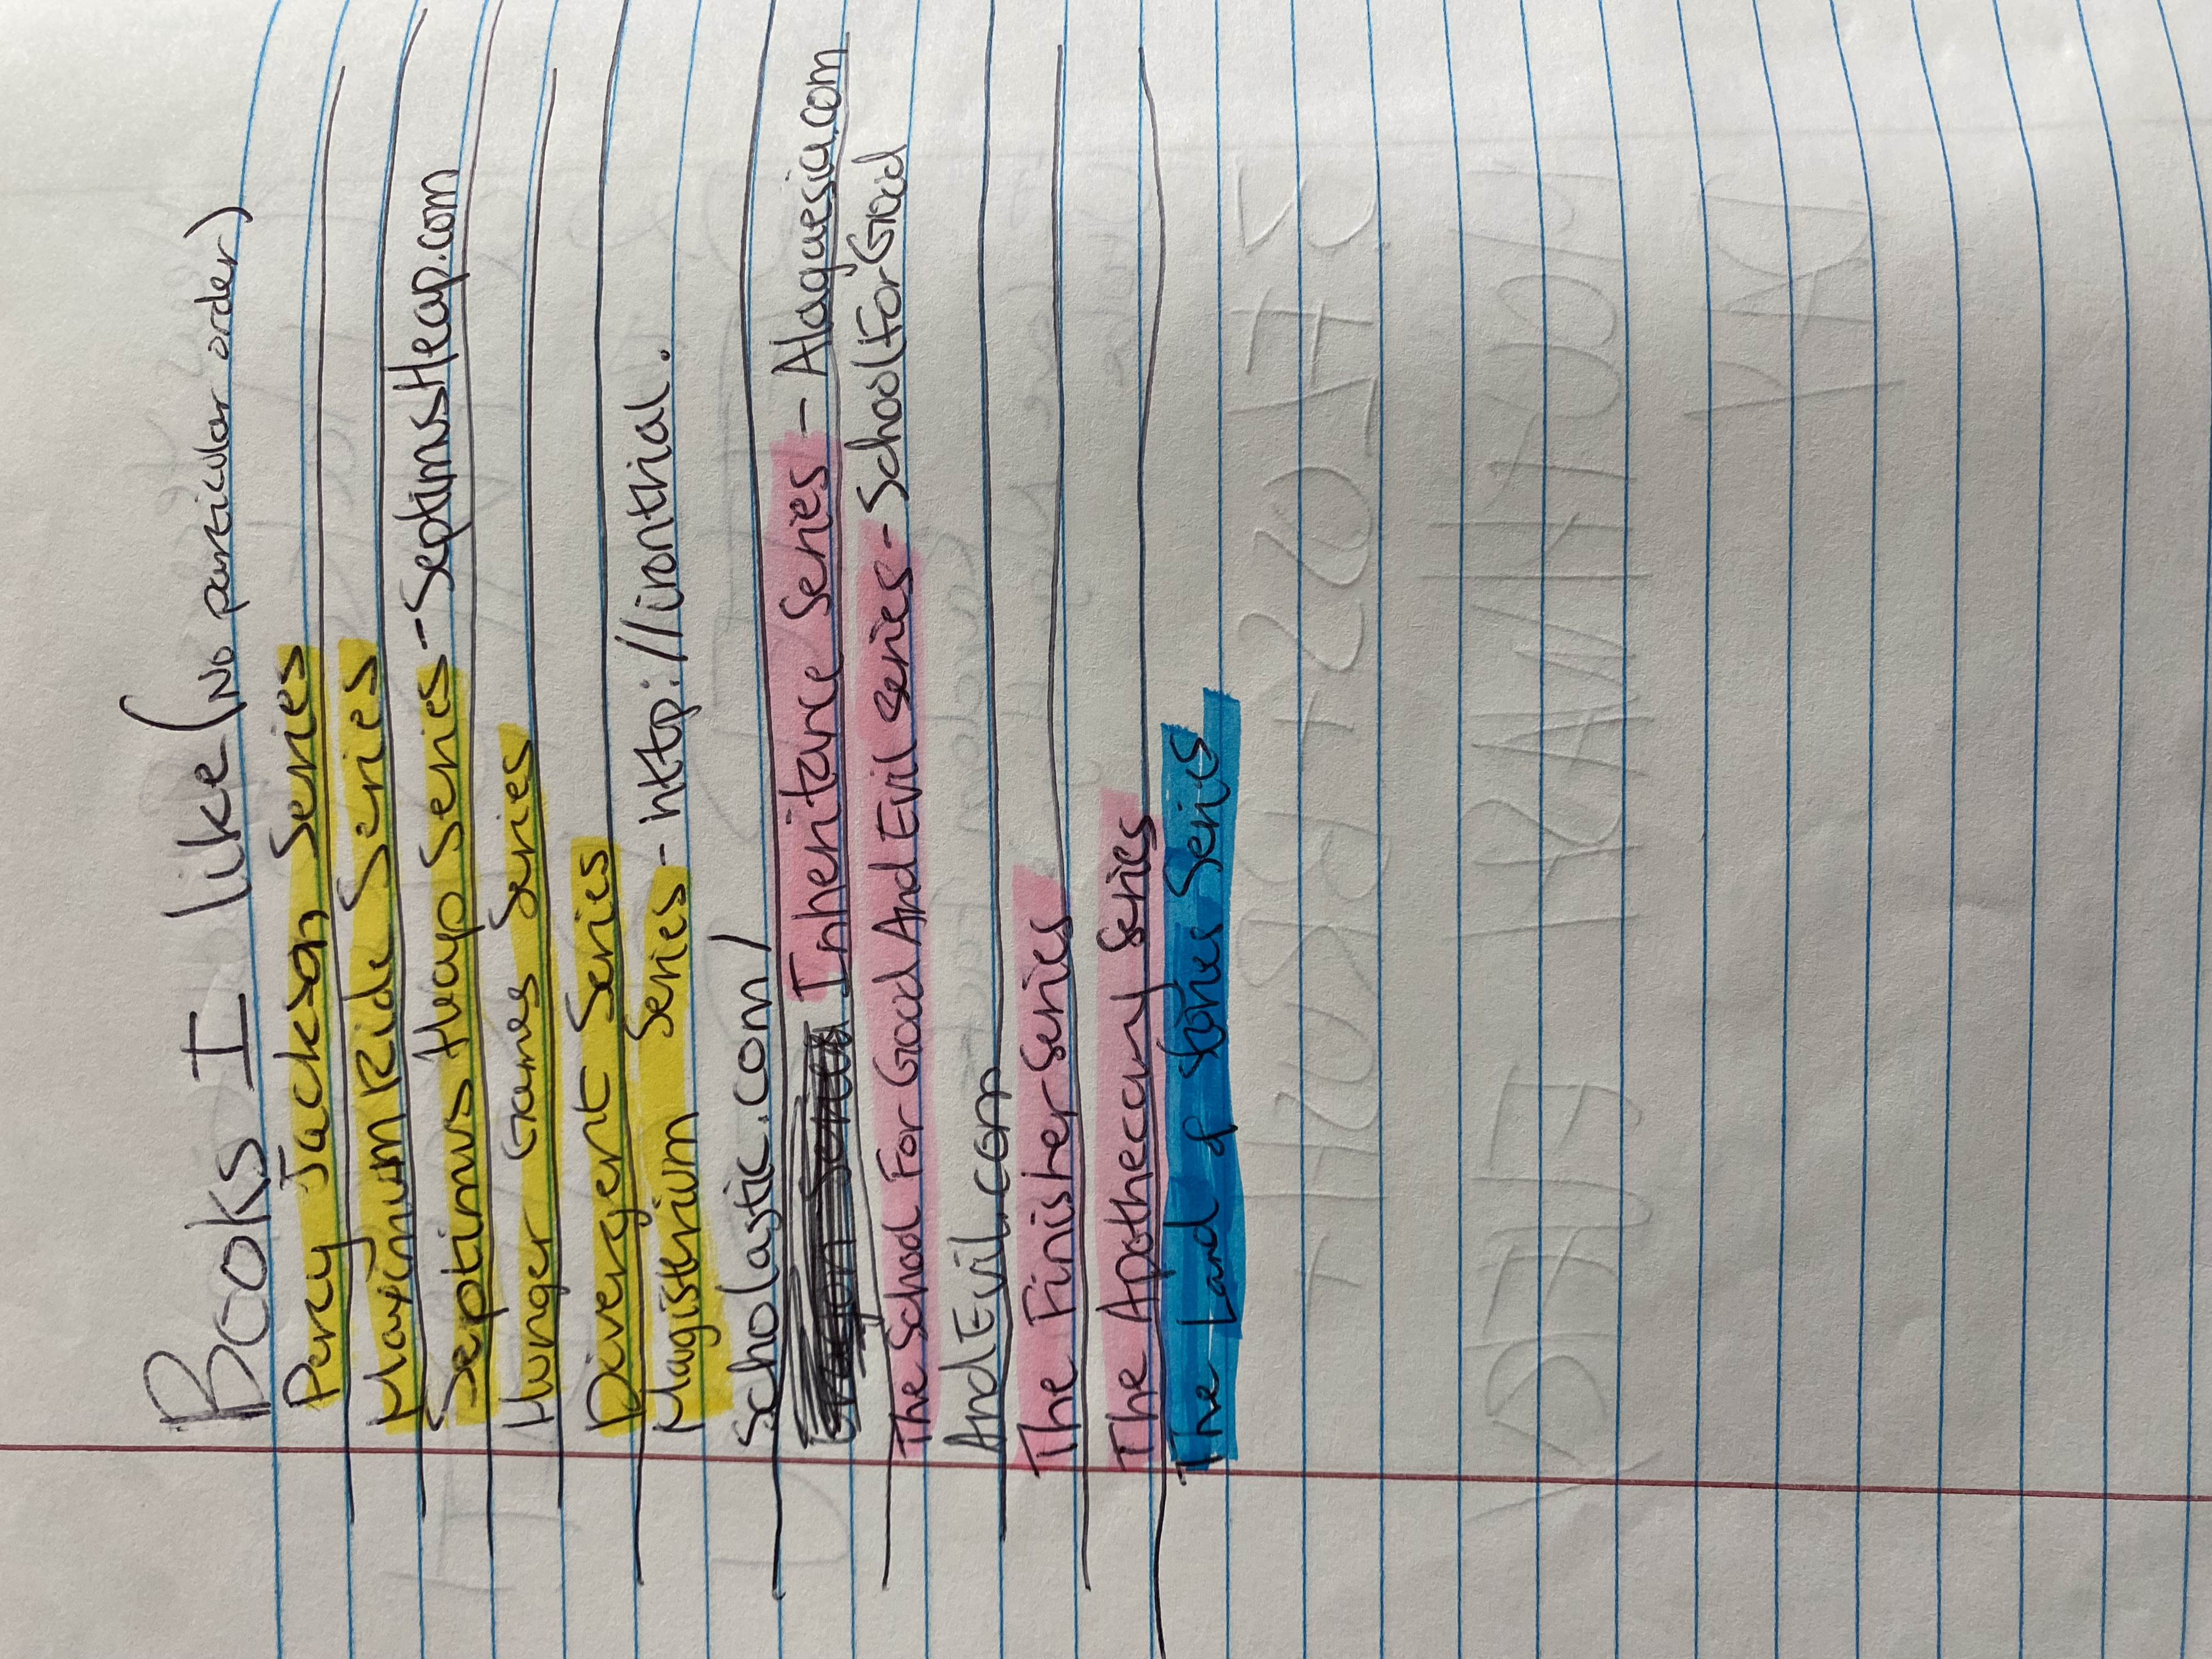 Books I like (No particular order)
Percy Jackson Series
Maximum Ride Series
Septimus Heap Series - SeptimusHeap.com
Hunger Games Series
Divergent Series
Magisterium Series - http://irontrial.
scholastic.com/
Eragon Series Inheritance Series - Alagaesia.com
The School For Good And Evil Series - SchoolForGood
AndEvil.com
The Finisher Series
The Apothecary Series
The Land of Stories Series
3 FLOSS + BRUSH +
MOUTHWASH EVERY
DAY